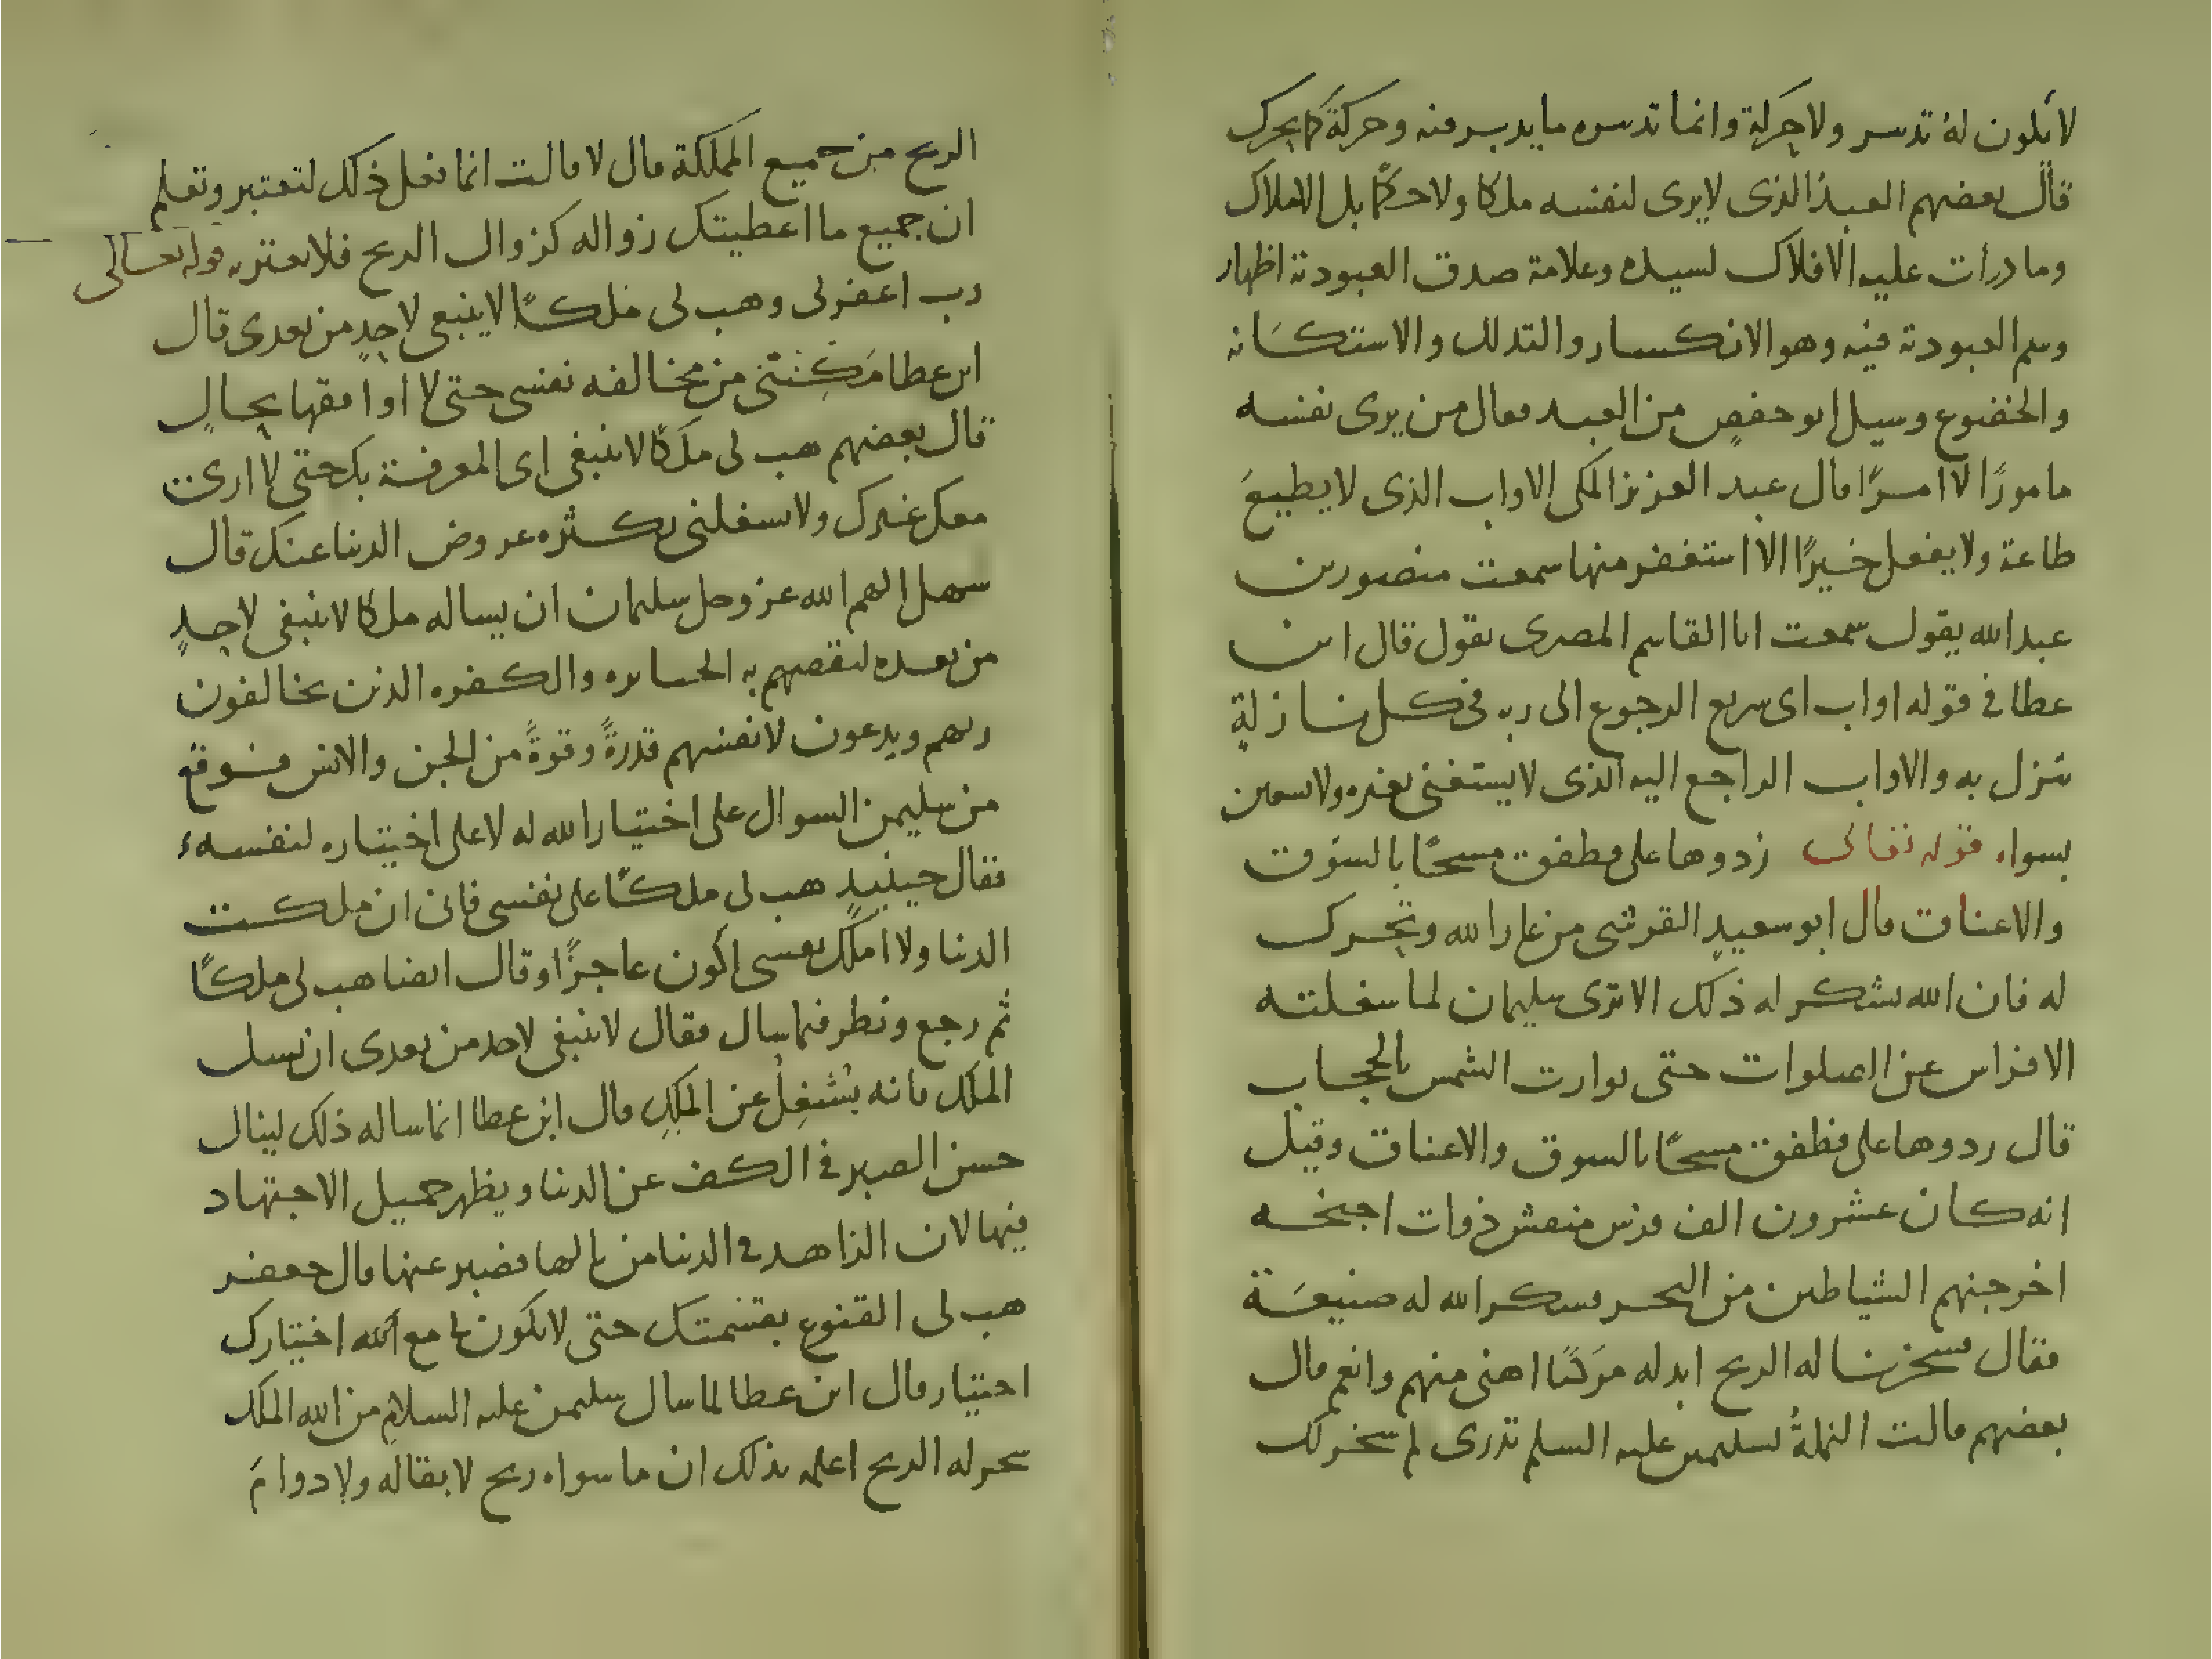 لا يكون له تدبير ولا حركة وانما تدبيره ما يدبر فيه وحركة كما يحرك
قال بعضهم العبد الذى لا يرى لنفسه ملكا ولا حكما بل الاملاك
وما درات عليه الافلاك لسيده وعلامة صدق العبودية اظهار
وسم العبودية فيه وهو الانكسار والتذلل والاستكانه
والخضوع وسيل ابو حفص من العبد فقال من يرى نفسه
مامورًا لا امرًا قال عبد العزيز المكى الاواب الذى لا يطيع
طاعة ولا يفعل خيرًا الا استغفر منها سمعت منصور بن
عبد الله يقول سمعت ابا القاسم المصرى يقول قال ابن
عطا فى قوله اواب اى سريع الرجوع الى ربه فى كل نازلةٍ
تنزل به والاواب الراجع اليه الذى لا يستغنى بغيره ولا يستعين
بسواه قوله تعالى ردوها على فطفق مسحًا بالسوق
والاعناق قال ابو سعيدٍ القرشى من غار الله وتحرك
له فان الله يشكر له ذلك الا ترى سليمان لما شغلته
الافراس عن الصلوات حتى توارت الشمس بالحجاب
قال ردوها على فطفق مسحًا بالسوق والاعناق وقيل
انه كان عشرون الف فرس منقش ذوات اجنحه
اخرجنهم الشياطين من البحر فشكر الله له صنيعَة
فقال فسخرنا له الريح ابدله مركبًا اهنى منهم وانعم قال
بعضهم قالت النملةُ لسليمن عليه السلم تدرى لم سخر لك
الريح من جميع المملكة قال لا قالت انما فعل ذلك لتعتبر وتعلم
ان جميع ما اعطيتك زواله كزوال الريح فلا تغتر به قوله تعالى
رب اغفر لى وهب لى ملكًا لا ينبغى لاحدٍ من بعدى قال
ابن عطا مَكِنِّى من مخالفه نفسى حتى لا اوافقها بحالٍ
قال بعضهم هب لى ملكًا لا ينبغى اى المعرفة بك حتى لا ارى
معك غيرك ولا تشغلنى بكثره عروض الدنيا عنك قال
سهل الهم الله عز وجل سليمان ان يساله ملكا لا ينبغى لاحدٍ
من بعده ليقصهم به الجبابره والكفره الذين يخالفون
ربهم ويدعون لانفسهم قدرةً وقوةً من الجن والانس فوقع
من سليمن السوال على اختيار الله له لا على اختياره لنفسه
فقال حينيذٍ هب لى ملكًا على نفسى فانى ان ملكت
الدنيا ولا املك نفسى اكون عاجزًا وقال ايضا هب لى ملكًا
ثم رجع ونظر فيما سال فقال لا ينبغى لاحد من بعدى ان يسل
الملك فانه يُشغِلُ عن الملكِ قال ابن عطا انما ساله ذلك لينال
حسن الصبر فى الكف عن الدنيا ويظهر جميل الاجتهاد
فيها لان الزاهد فى الدنيا من نالها فصبر عنها قال جعفر
هب لى القنوع بقسمتك حتى لا يكون لى مع اختيارك
اختيار قال ابن عطا لما سال سليمن عليه السلام من الله الملك
سخر له الريح اعلمه بذلك ان ما سواه ريح لا بقا له ولا دوامَ